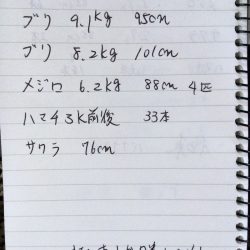 ブリ 9.1kg 95cm
ブリ 8.2kg 101cm
メジロ 6.2kg 88cm 4匹
ハマチ3K前後 33本
サワラ 76cm